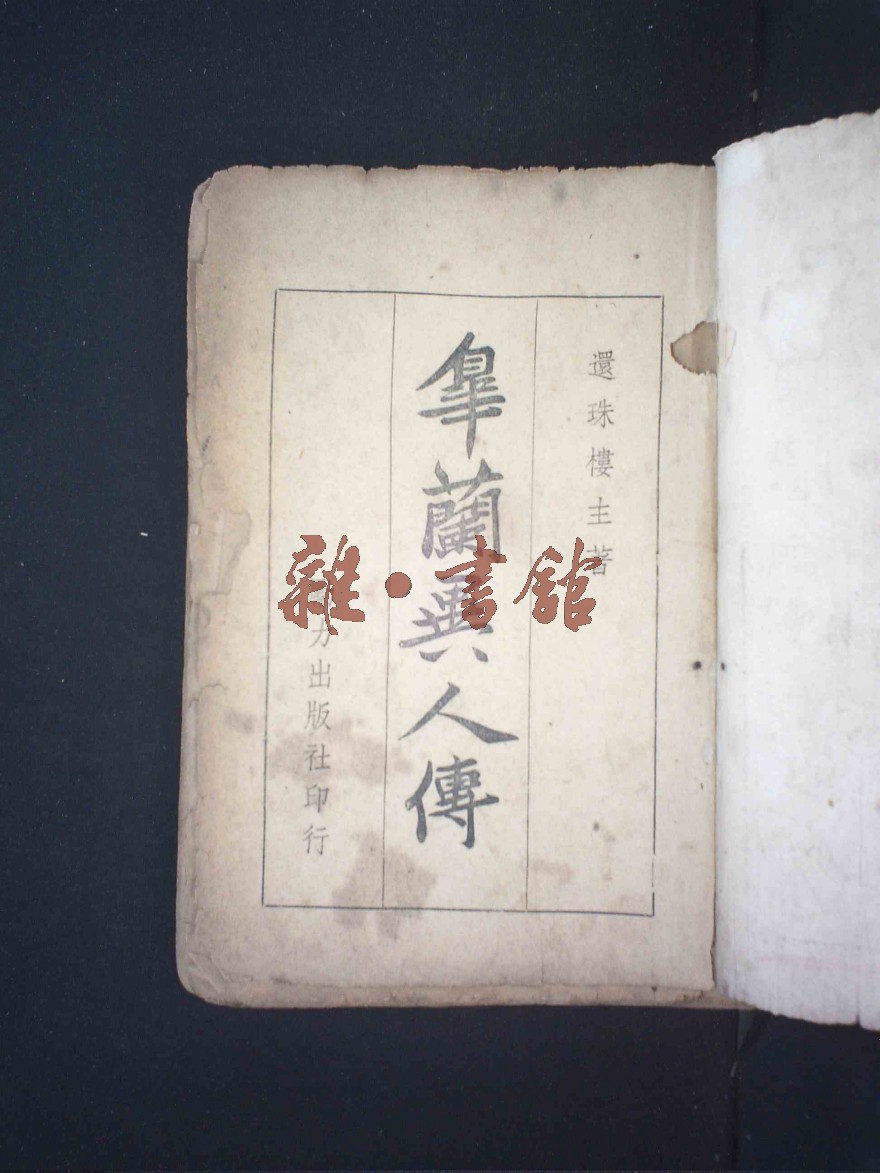 還珠樓主著
皋蘭異人傳
力出版社印行
雜·書館